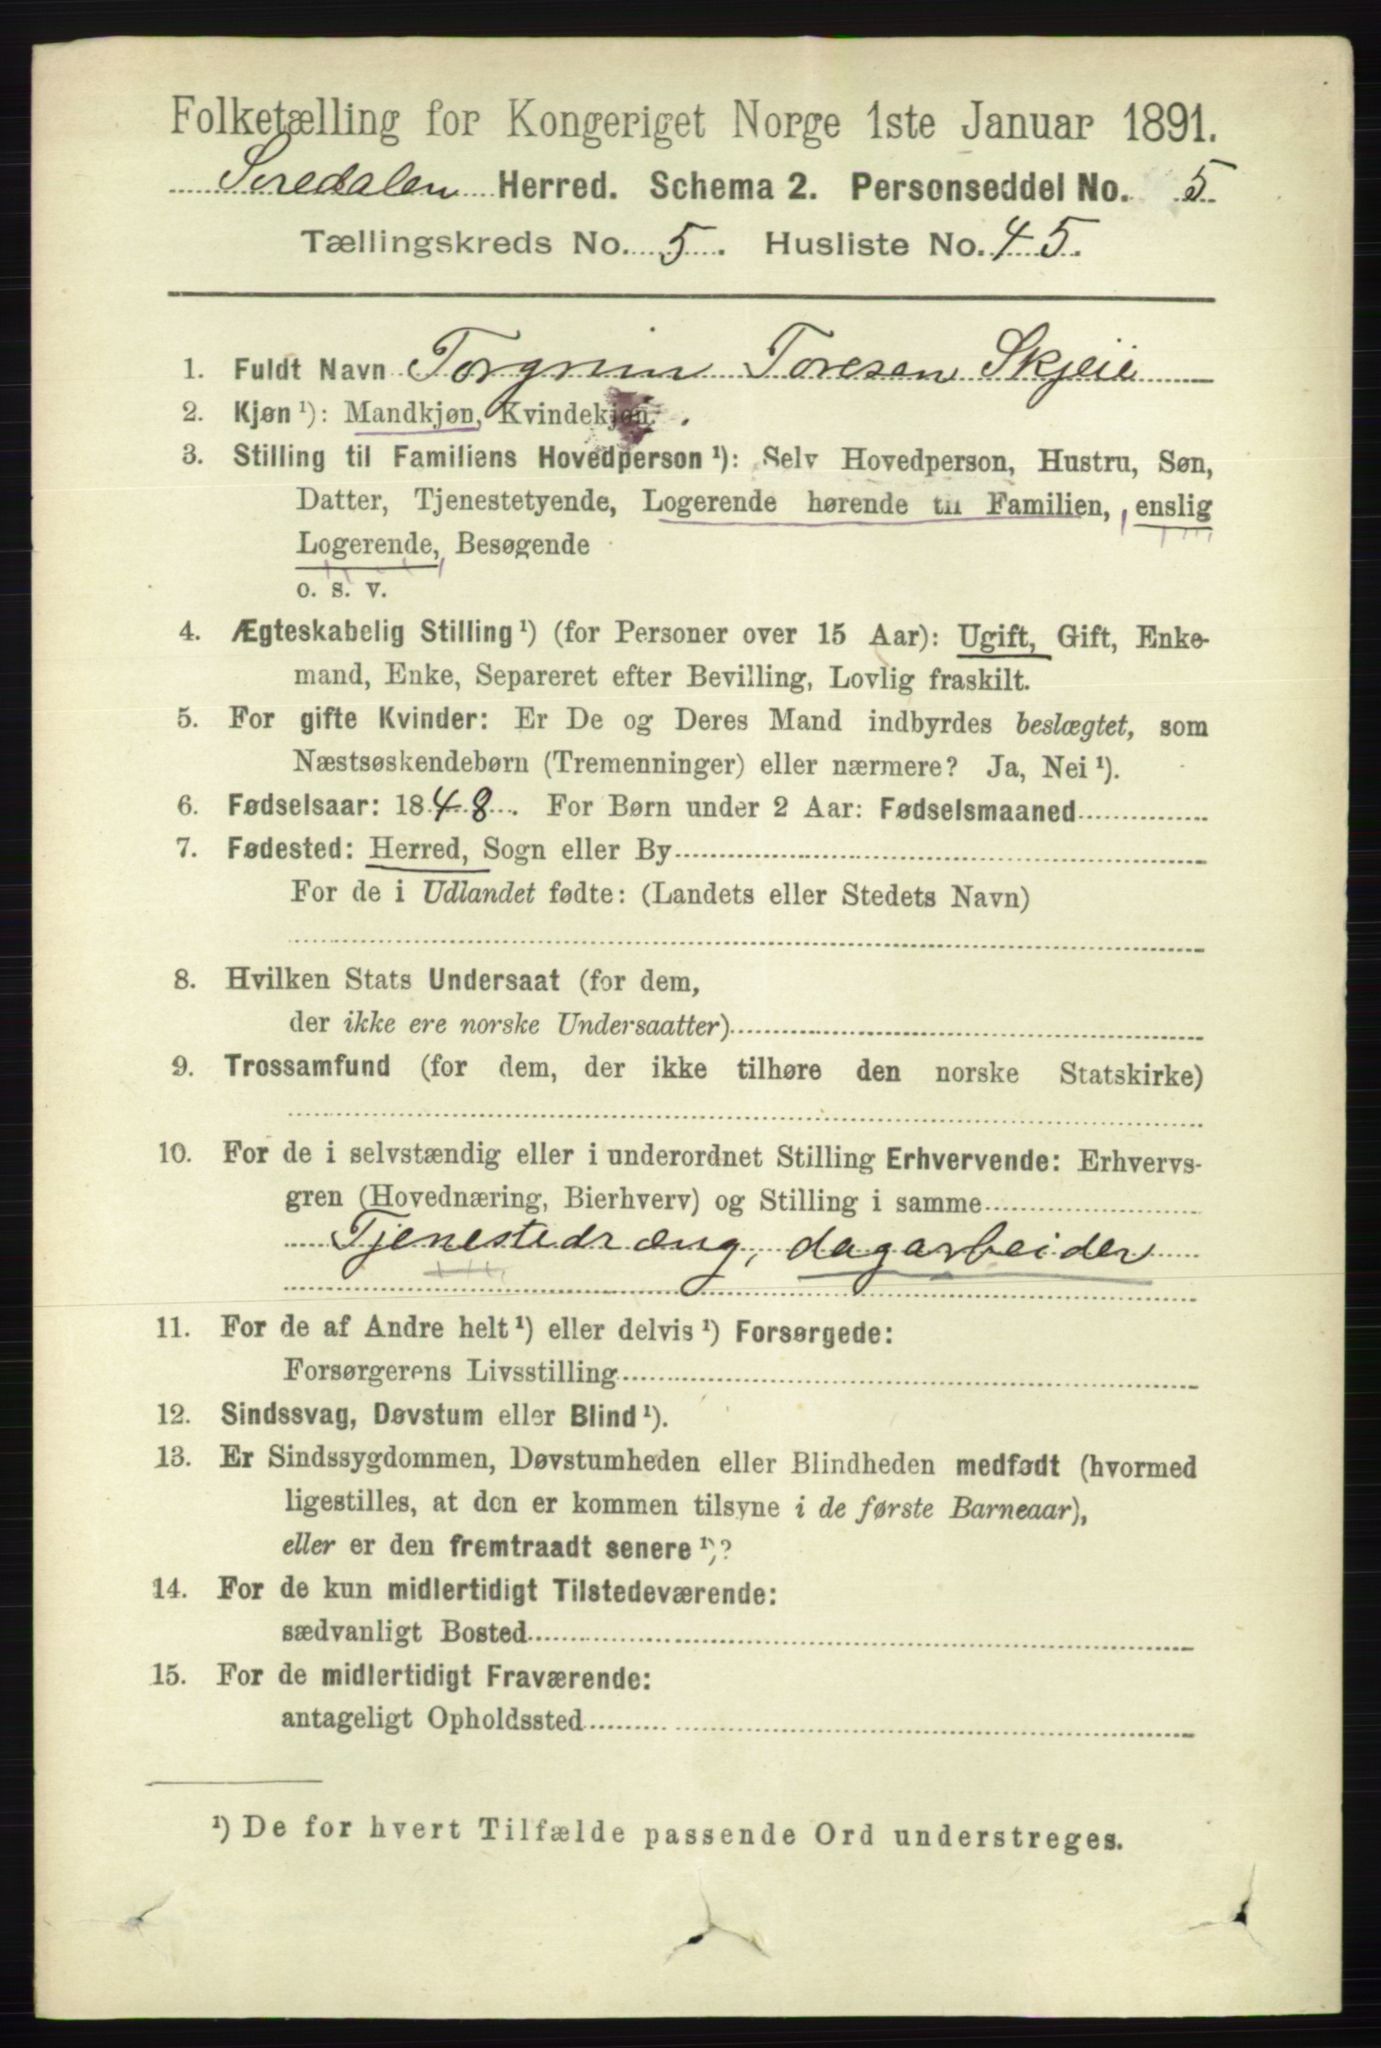 Folketælling for Kongeriget Norge 1ste Januar 1891.
Siredalen Herred. Schema 2. Personseddel No. 5
Tællingskreds No. 5. Husliste No. 45.
1. Fuldt Navn Torgrim Toresen Skjeie
2. Kjøn ¹): Mandkjøn, Kvindekjøn.
3. Stilling til Familiens Hovedperson ¹): Selv Hovedperson, Hustru, Søn,
Datter, Tjenestetyende, Logerende hørende til Familien, enslig
Logerende, Besøgende
o. s. v.
4. Ægteskabelig Stilling ¹) (for Personer over 15 Aar): Ugift, Gift, Enke-
mand, Enke, Separeret efter Bevilling, Lovlig fraskilt.
5. For gifte Kvinder: Er De og Deres Mand indbyrdes beslægtet, som
Næstsøskendebørn (Tremenninger) eller nærmere? Ja, Nei ¹).
6. Fødselsaar: 1848. For Børn under 2 Aar: Fødselsmaaned
7. Fødested: Herred, Sogn eller By
For de i Udlandet fødte: (Landets eller Stedets Navn)
8. Hvilken Stats Undersaat (for dem,
der ikke ere norske Undersaatter)
9. Trossamfund (for dem, der ikke tilhøre den norske Statskirke)
10. For de i selvstændig eller i underordnet Stilling Erhvervende: Erhvervs-
gren (Hovednæring, Bierhverv) og Stilling i samme
Tjenestedræng, dagarbeider
11. For de af Andre helt ¹) eller delvis ¹) Forsørgede:
Forsørgerens Livsstilling
12. Sindssvag, Døvstum eller Blind ¹).
13. Er Sindssygdommen, Døvstumheden eller Blindheden medfødt (hvormed
ligestilles, at den er kommen tilsyne i de første Barneaar),
eller er den fremtraadt senere ¹)?
14. For de kun midlertidigt Tilstedeværende:
sædvanligt Bosted
15. For de midlertidigt Fraværende:
antageligt Opholdssted
¹) De for hvert Tilfælde passende Ord understreges.